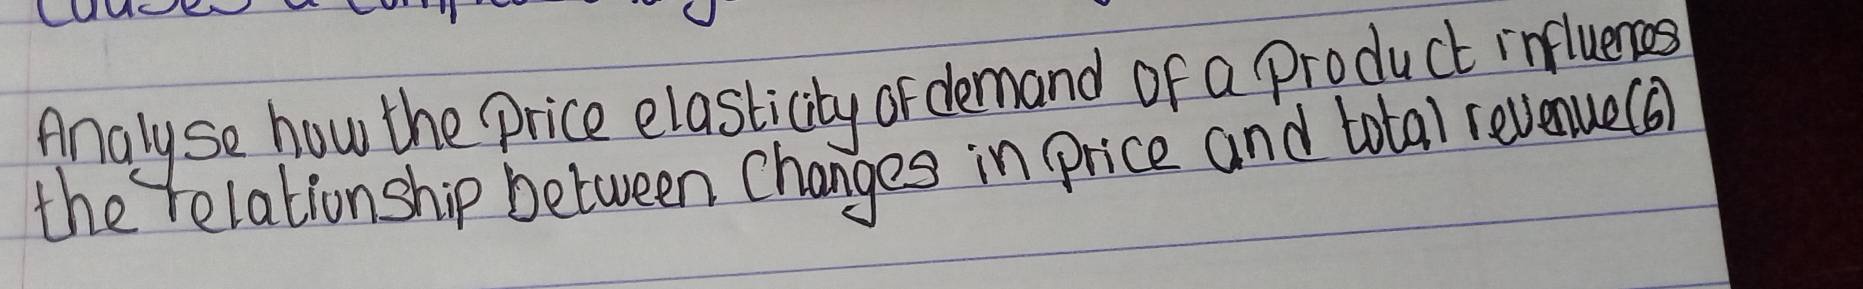 Analyse how the price elasticity of demand of a product influences
the relationship between changes in price and total revenue (6)